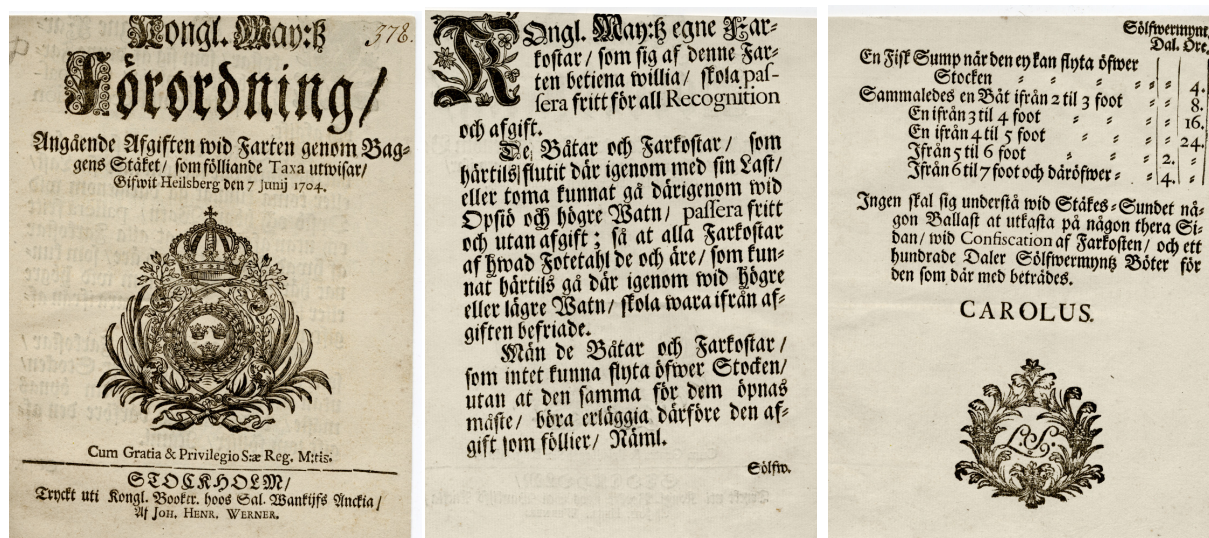 Kongl. May:tz
378.
Förordning/
Angående Afgiften wid Farten genom Bag-
gens Stäket/ som fölliande Taxa utwisar/
Gifwit Heilsberg den 7 Junij 1704.
Cum Gratia & Privilegio S:æ Reg. M:tis.
STOCKHOLM/
Tryckt uti Kongl. Booktr. hoos Sal. Wankijfs Änckia/
Af JOH. HENR. WERNER.
KOngl. May:tz egne Far-
kostar/ som sig af denne Far-
ten betiena willia/ skola pas-
sera fritt för all Recognition
och afgift.
De Båtar och Farkostar/ som
härtils flutit där igenom med sin Last/
eller toma kunnat gå därigenom wid
Opsiö och högre Watn/ passera fritt
och utan afgift; så at alla Farkostar
af hwad Fotetahl de och äre/ som kun-
nat härtils gå där igenom wid högre
eller lägre Watn/ skola wara ifrån af-
giften befriade.
Män de Båtar och Farkostar/
som intet kunna flyta öfwer Stocken/
utan at den samma för dem öpnas
måste/ böra erläggia därföre den af-
gift som föllier/ Näml.
Sölfw.
Sölfwermynt.
Dal. Öre.
En Fisk Sump när den ey kan flyta öfwer
Stocken = = = = = 4.
Sammaledes en Båt ifrån 2 til 3 foot = = 8.
En ifrån 3 til 4 foot = = = = 16.
En ifrån 4 til 5 foot = = = = 24.
Ifrån 5 til 6 foot = = = 2. =
Ifrån 6 til 7 foot och däröfwer = = 4. =
Ingen skal sig understå wid Stäkes=Sundet nå-
gon Ballast at utkasta på någon thera Si-
dan/ wid Confiscation af Farkosten/ och ett
hundrade Daler Sölfwermyntz Böter för
den som där med beträdes.
CAROLUS.
L.S.